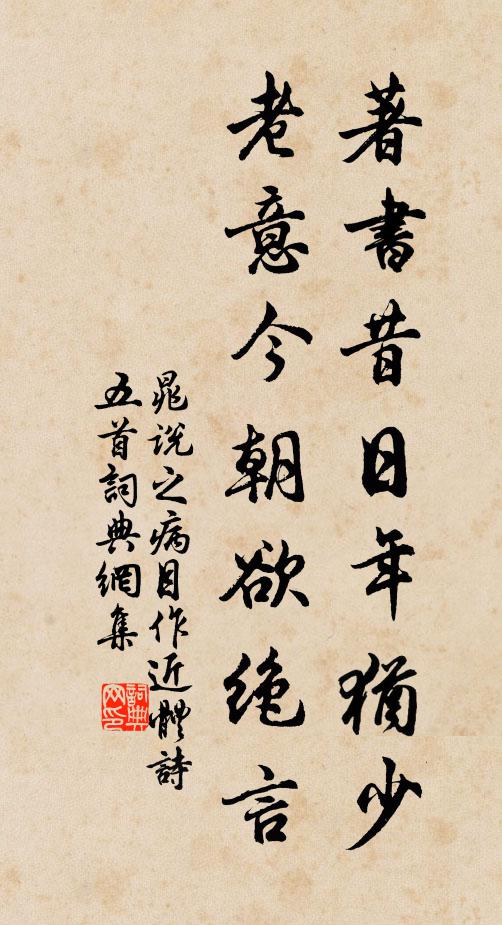 著書昔日年猶少
老意今朝欲絶言
晁說之病目作近體詩
五首詞典網集
詞典網印